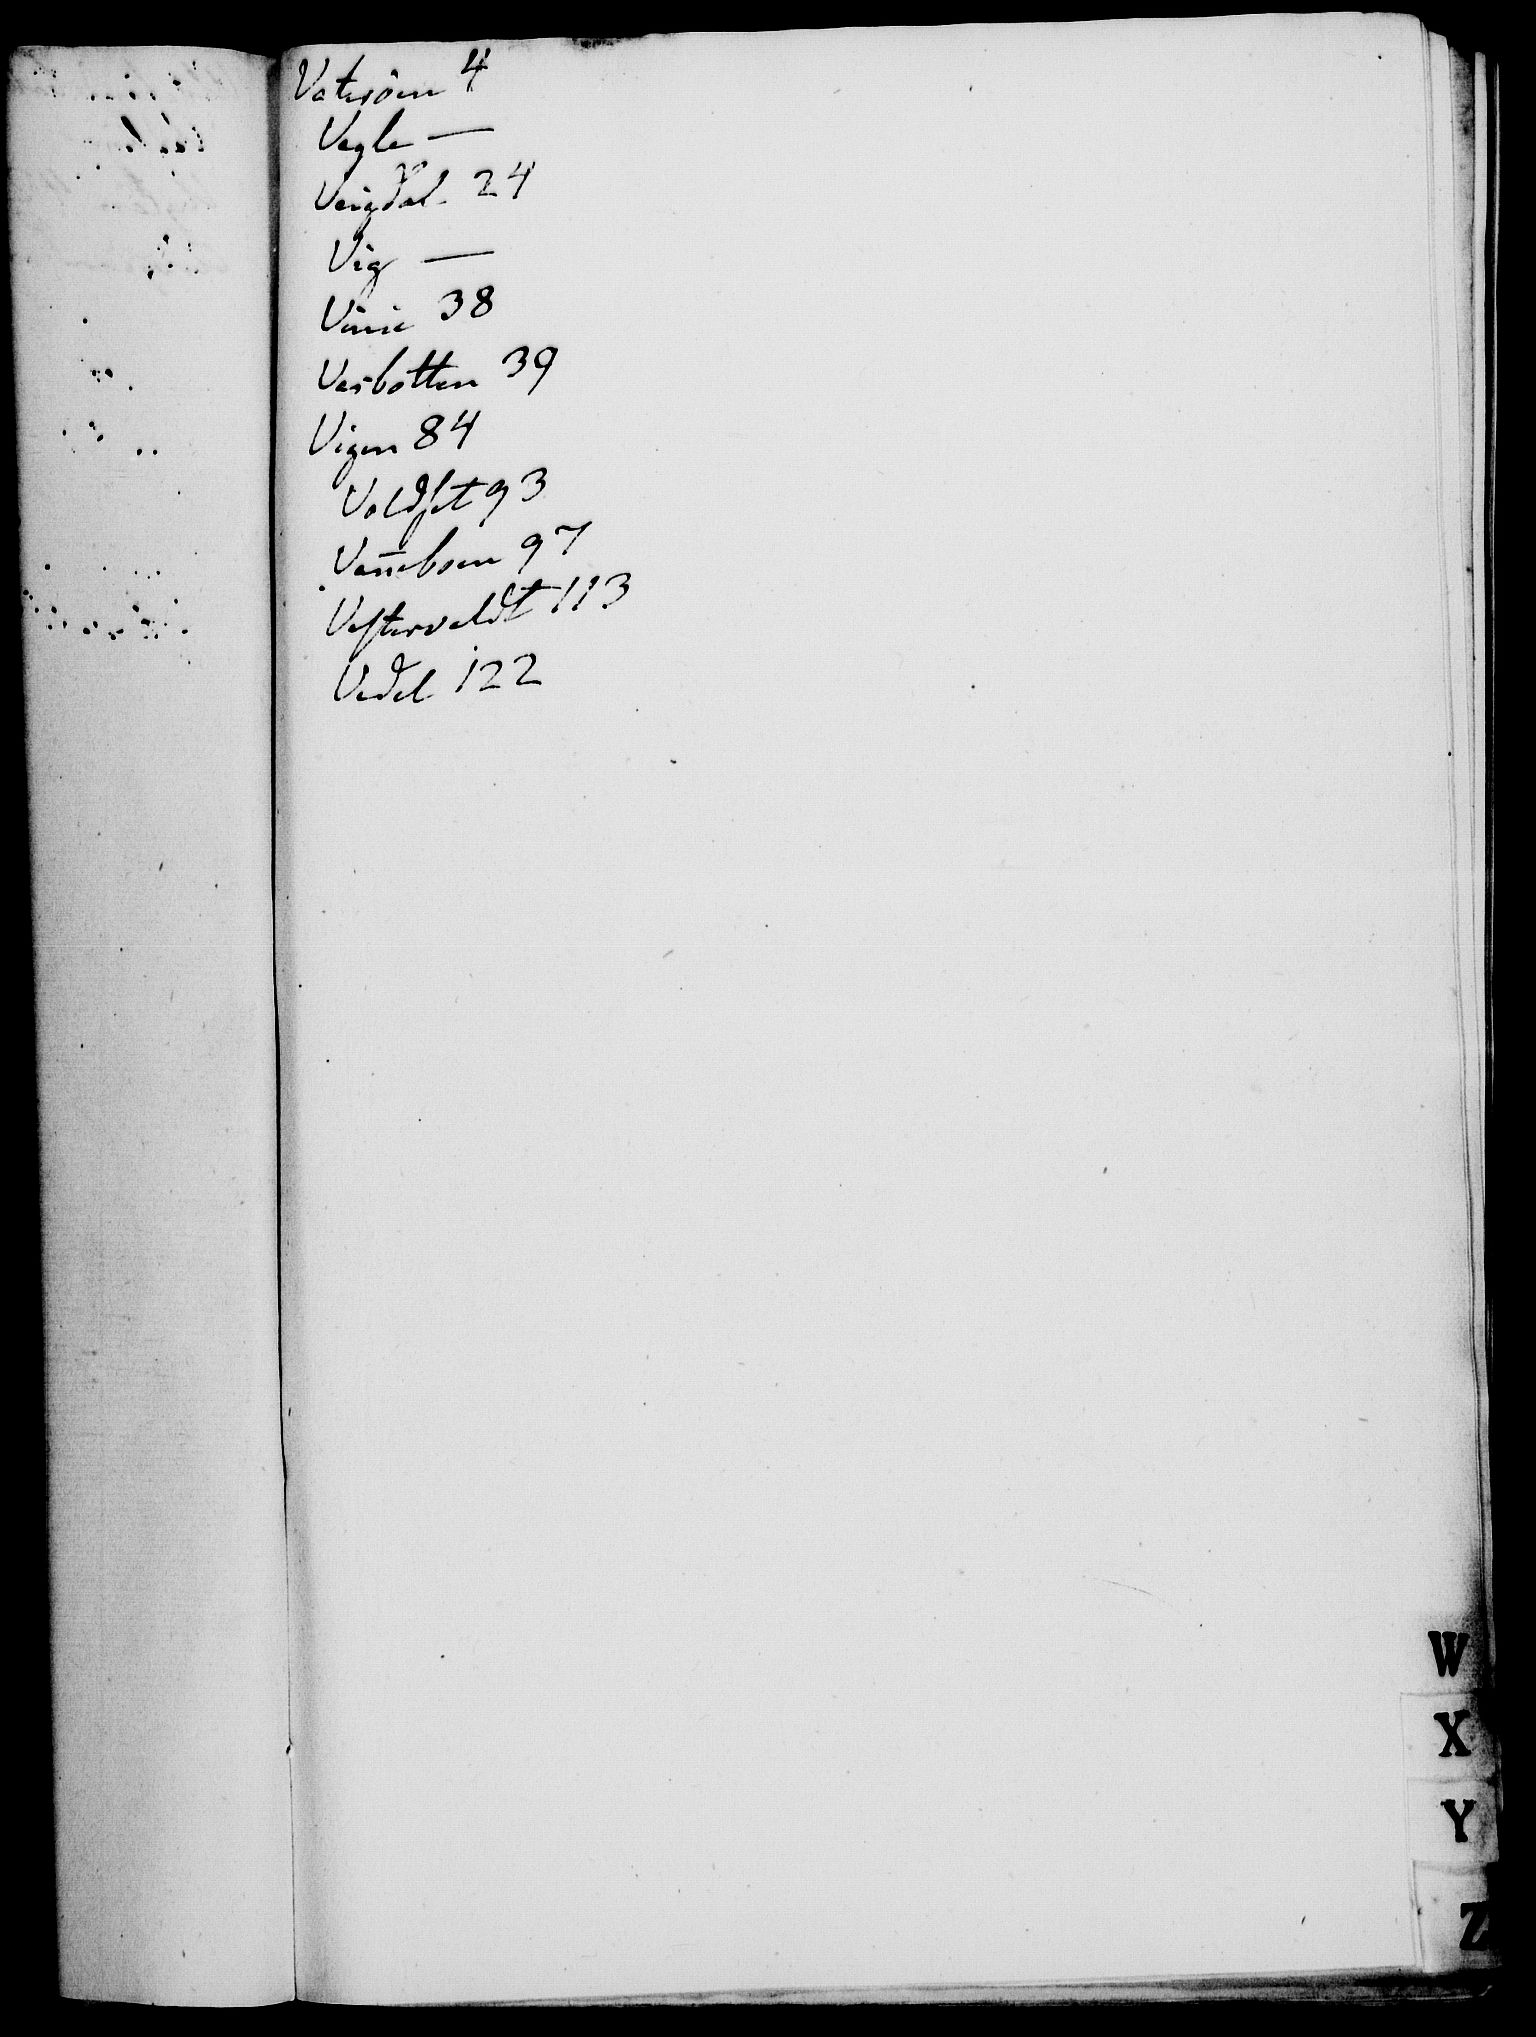 Vatsöen 4
Vegle —
Veigdal 24
Vig —
Vinie 38
Vesbotten 39
Vigen 84
Voldset 93
Vaneboen 97
Vesterveldt 113
Vedel 122
W
X
Y
Z